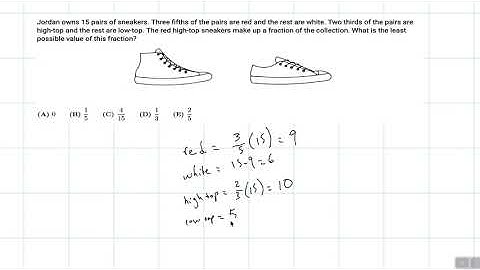 Jordan owns 15 pairs of sneakers. Three fifths of the pairs are red and the rest are white. Two thirds of the pairs are
high-top and the rest are low-top. The red high-top sneakers make up a fraction of the collection. What is the least
possible value of this fraction?
(A) 0 (B) 1/5 (C) 4/15 (D) 1/3 (E) 2/5
red = 3/5 (15) = 9
white = 15-9 = 6
high top = 2/3 (15) = 10
low top = 5